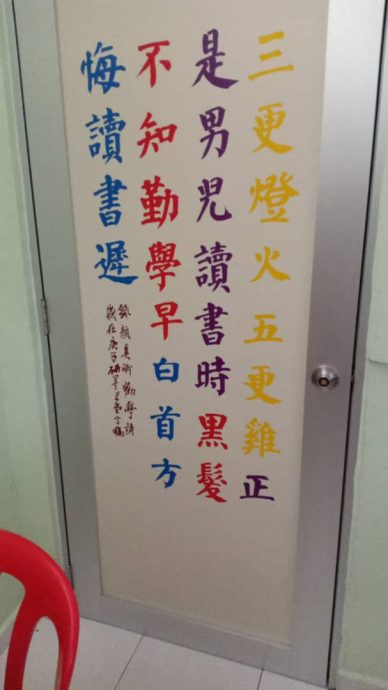 三更燈火五更雞正
是男兒讀書時黑髮
不知勤學早白首方
悔讀書遲
錄顏真卿勸學詩
歲在庚子研墨